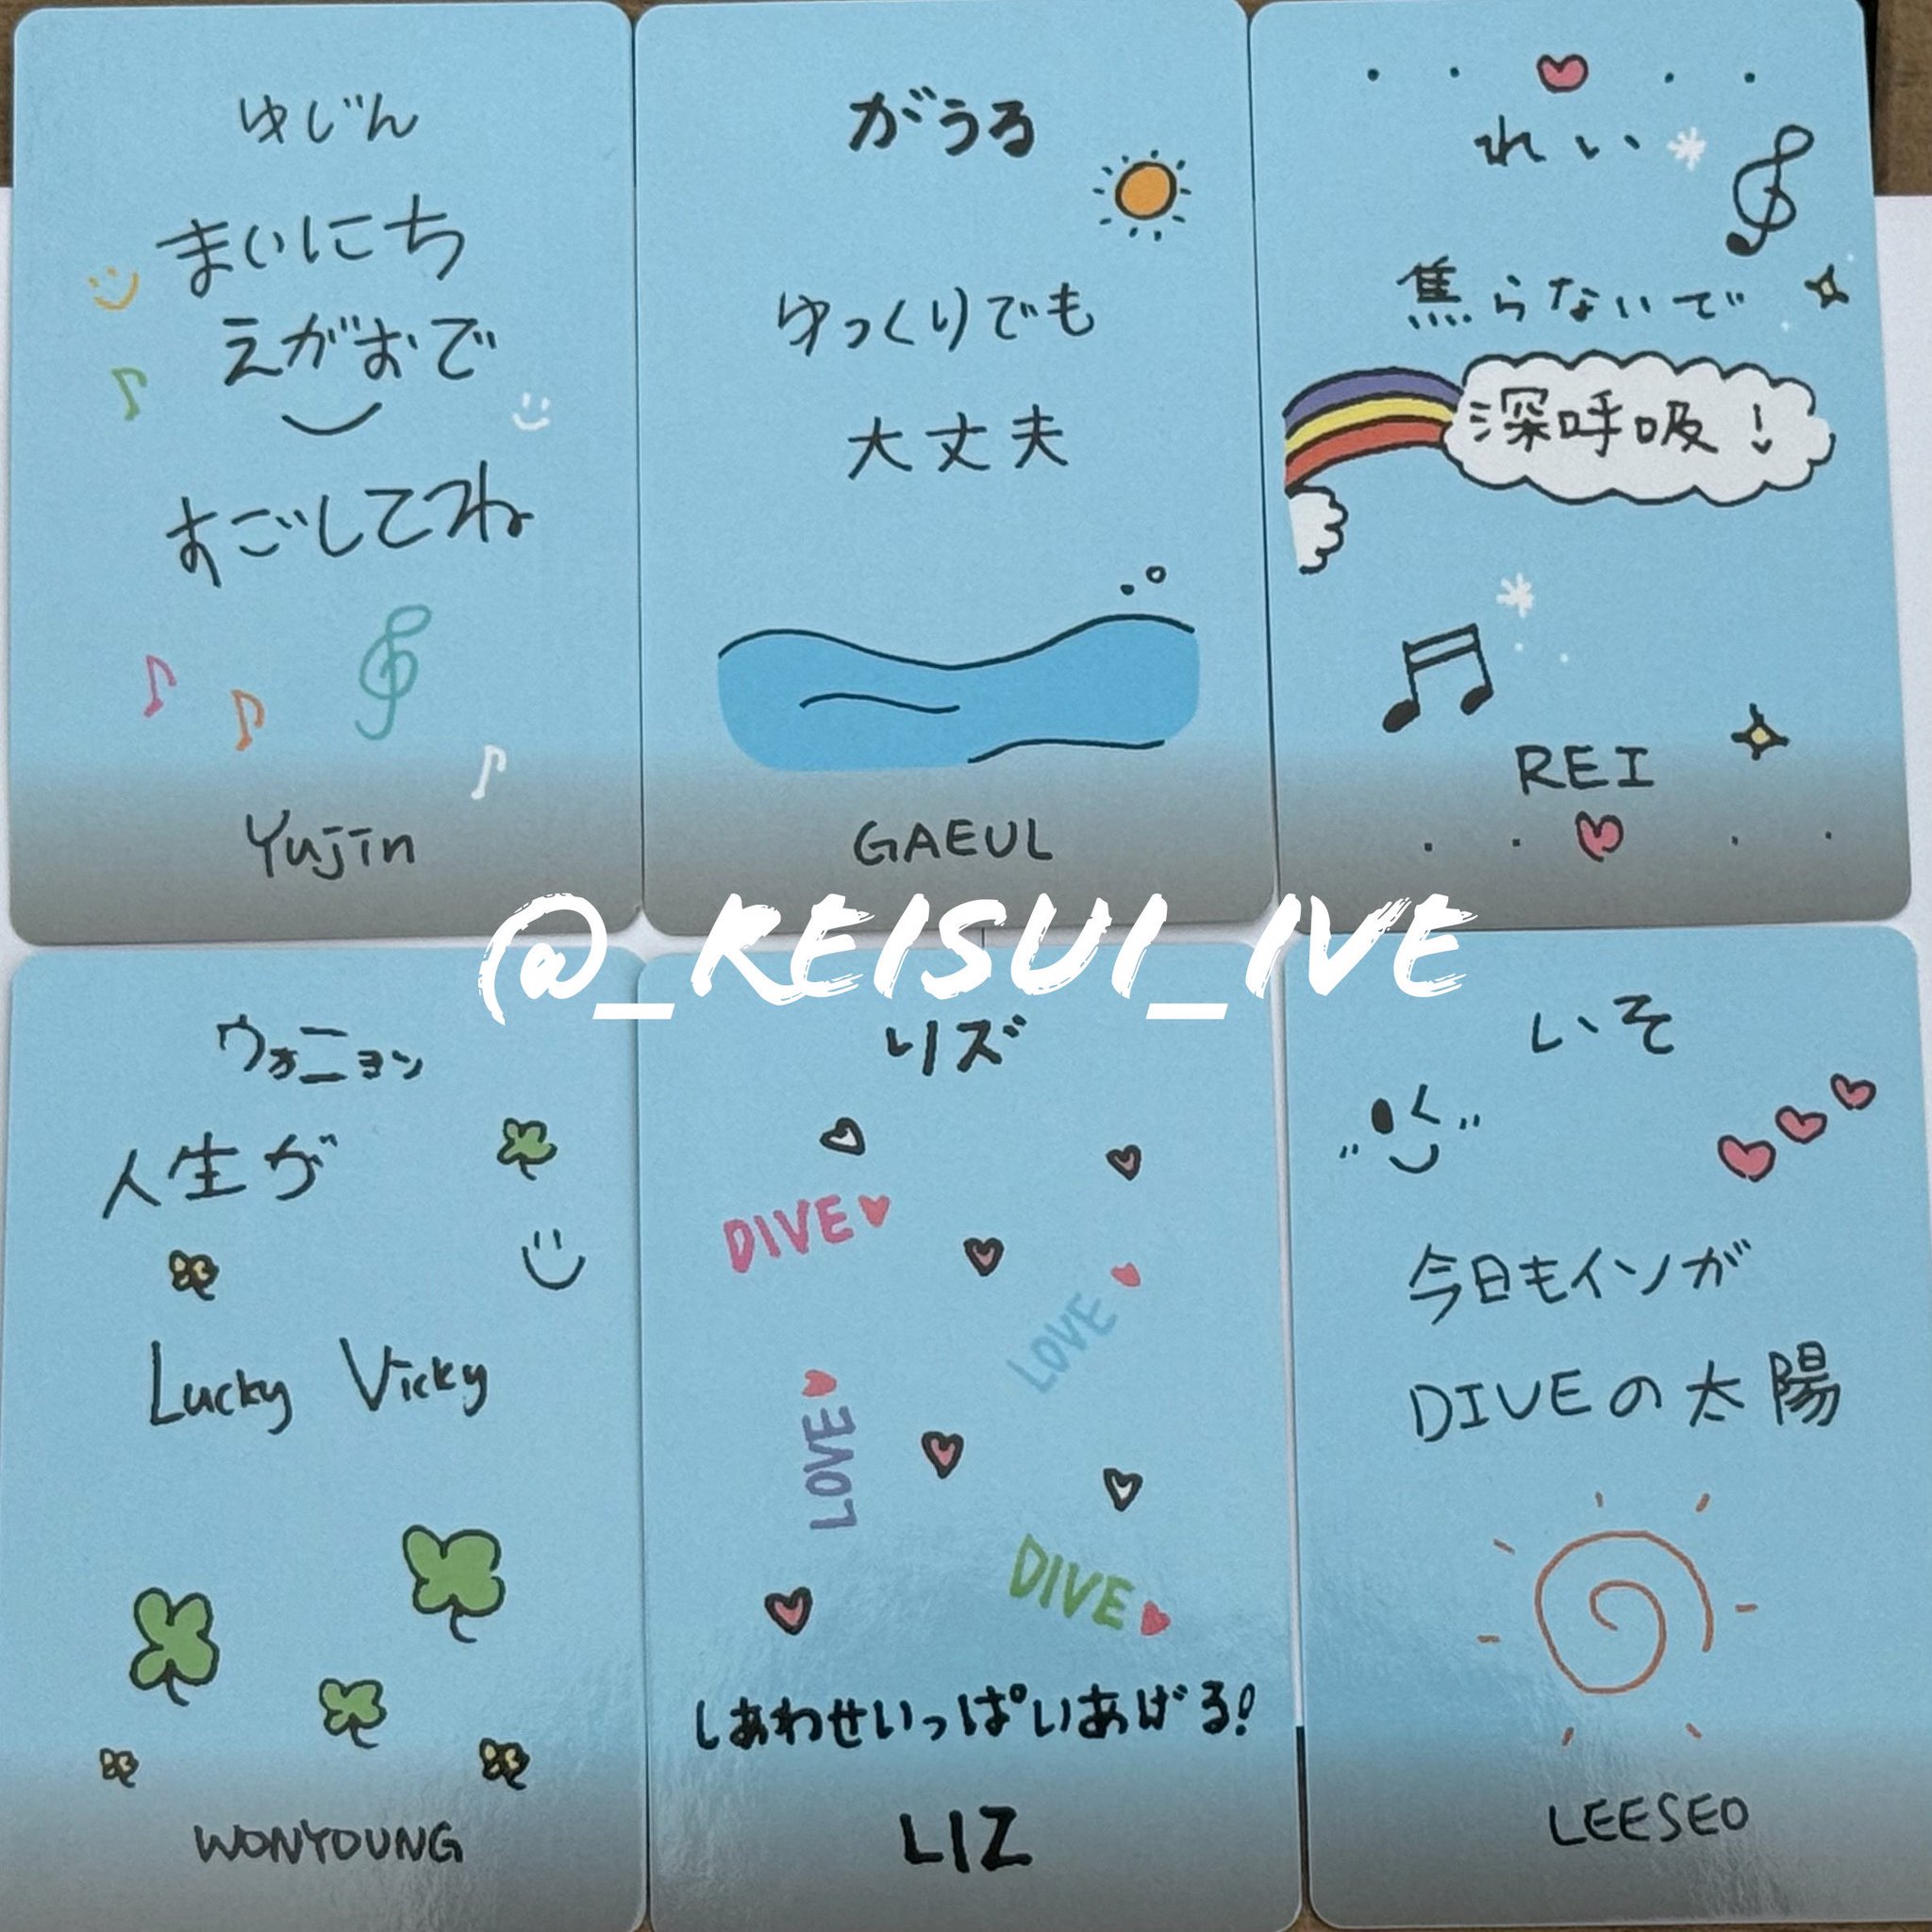 ゆじん
まいにち
えがおで
すごしてね
Yujin
がうる
ゆっくりでも
大丈夫
GAEUL
れい
焦らないで
深呼吸！
REI
@_REISUI_IVE
ウォニョン
人生が
Lucky Vicky
WONYOUNG
リズ
DIVE
LOVE
LOVE
DIVE
しあわせいっぱいあげる!
LIZ
いそ
今日もイソが
DIVEの太陽
LEESEO